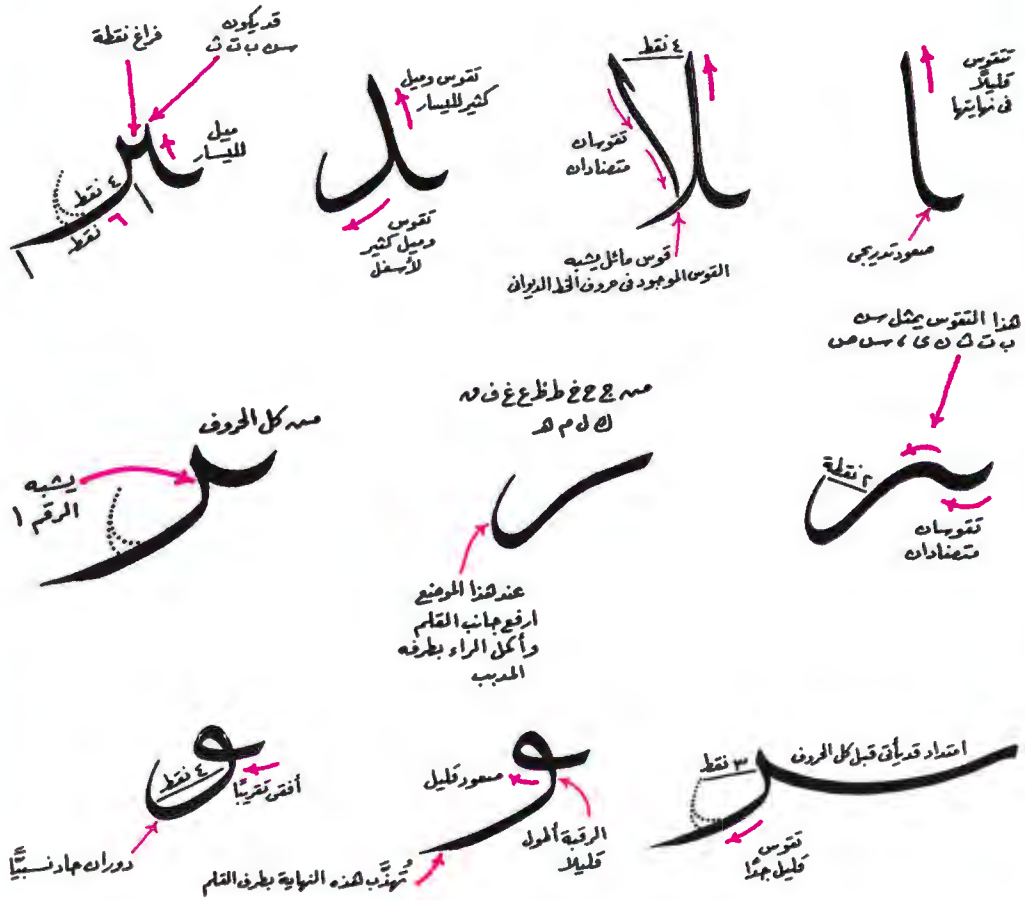 تتقوس
قليلًا
في نهايتها
صعود تدريجى
٤ نقط
تقوسان
متضادان
قوس مائل يشبه
القوس الموجود فى حروف الخط الديوانى
تقوس وميل
كثير لليسار
تقوس
وميل كثير
لأسفل
قد يكون
سن ب ت ث
فراغ نقطة
ميل
لليسار
٤ نقط
٦ نقط
هذا التقوس يمثل سن
ب ت ث ن ى ، س ص
٢ نقطة
تقوسان
متضادان
من ج ح خ ط ظ ع غ ف ق
ك ل م هـ
عند هذا الموضع
ارفع جانب القلم
وأكمل الراء بطرفه
المدبب
من كل الحروف
يشبه
الرقم ١
امتداد قد يأتى قبل كل الحروف
٣ نقط
تقوس
قليل جدًا
صعود قليل
الرقبة أطول
قليلا
تُهذَّب هذه النهاية بطرف القلم
٤ نقط
أفقى تقريبًا
دوران حاد نسبيًّا